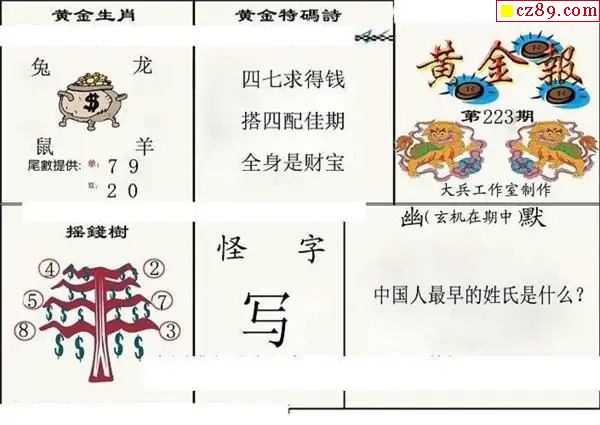 cz89.com
黄金生肖
兔 龙
鼠 羊
尾數提供: 单: 7 9
双: 2 0
黄金特碼詩
四七求得钱
搭四配佳期
全身是财宝
黄金報
第223期
大兵工作室制作
摇錢樹
④ ②
⑤ ⑦
⑧ ③
怪 字
写
幽(玄机在期中)默
中国人最早的姓氏是什么？